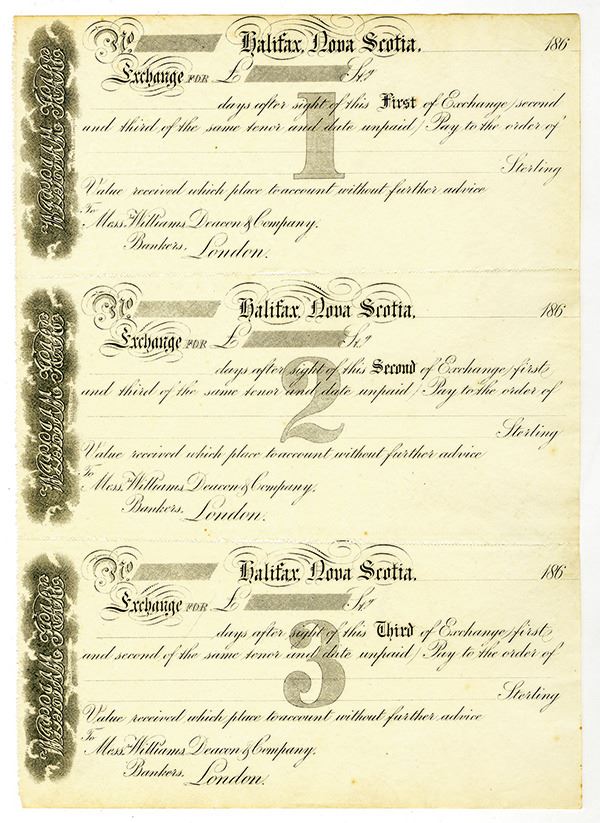 No Halifax, Nova Scotia, 186
Exchange FOR £ Stg
1
days after sight of this First of Exchange (second
and third of the same tenor and date unpaid) Pay to the order of
Sterling
Value received which place to account without further advice
To Mess. Williams Deacon & Company,
Bankers, London.
No Halifax, Nova Scotia, 186
Exchange FOR £ Stg
2
days after sight of this Second of Exchange (first
and third of the same tenor and date unpaid) Pay to the order of
Sterling
Value received which place to account without further advice
To Mess. Williams Deacon & Company,
Bankers, London.
No Halifax, Nova Scotia, 186
Exchange FOR £ Stg
3
days after sight of this Third of Exchange (first
and second of the same tenor and date unpaid) Pay to the order of
Sterling
Value received which place to account without further advice
To Mess. Williams Deacon & Company,
Bankers, London.